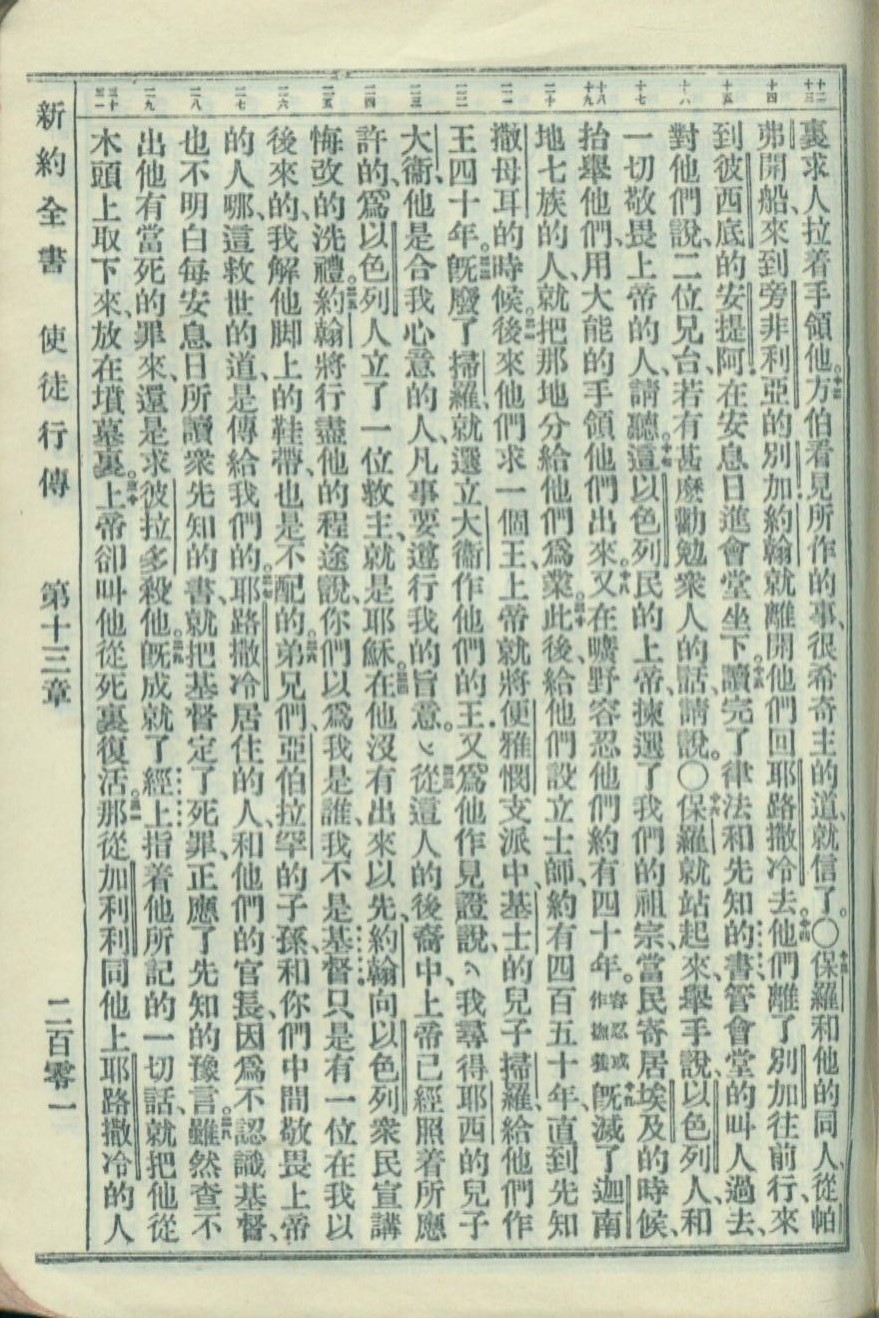 十二 十三 十四 十五 十六 十七 十八 十九 二十 二一 二二 二三 二四 二五 二六 二七 二八 二九 三十 三一
裏、求人拉着手領他。十二方伯看見所作的事、很希奇主的道、就信了。〇十三保羅和他的同人、從帕
弗開船、來到旁非利亞的別加、約翰就離開他們回耶路撒冷去。十四他們離了別加往前行、來
到彼西底的安提阿、在安息日進會堂坐下。十五讀完了律法和先知的書、管會堂的叫人過去、
對他們說、二位兄台、若有甚麼勸勉衆人的話、請說。〇十六保羅就站起來、舉手說、以色列人、和
一切敬畏上帝的人、請聽。十七這以色列民的上帝、揀選了我們的祖宗、當民寄居埃及的時候、
抬舉他們、用大能的手領他們出來。十八又在曠野容忍他們、約有四十年。容忍或作撫養十九既滅了迦南
地七族的人、就把那地分給他們爲業。二十此後給他們設立士師、約有四百五十年、直到先知
撒母耳的時候。二一後來他們求一個王、上帝就將便雅憫支派中、基士的兒子掃羅、給他們作
王四十年。二二既廢了掃羅、就選立大衞作他們的王。又爲他作見證說、我尋得耶西的兒子
大衞、他是合我心意的人、凡事要遵行我的旨意。二三從這人的後裔中、上帝已經照着所應
許的、爲以色列人立了一位救主、就是耶穌。二四在他沒有出來以先、約翰向以色列衆民宣講
悔改的洗禮。二五約翰將行盡他的程途說、你們以爲我是誰、我不是基督、只是有一位在我以
後來的、我解他脚上的鞋帶、也是不配的。二六弟兄們、亞伯拉罕的子孫、和你們中間敬畏上帝
的人哪、這救世的道、是傳給我們的。二七耶路撒冷居住的人、和他們的官長、因爲不認識基督、
也不明白每安息日所讀衆先知的書、就把基督定了死罪、正應了先知的豫言。二八雖然查不
出他有當死的罪來、還是求彼拉多殺他。二九既成就了經上指着他所記的一切話、就把他從
木頭上取下來、放在墳墓裏。三十上帝卻叫他從死裏復活。三一那從加利利同他上耶路撒冷的人
新約全書 使徒行傳 第十三章 二百零一